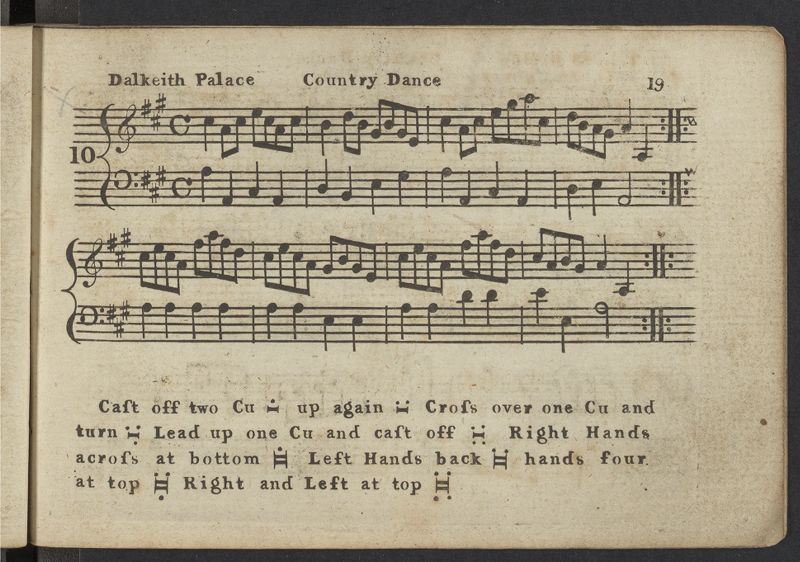 Dalkeith Palace Country Dance 19
10
Caſt off two Cu up again Croſs over one Cu and
turn Lead up one Cu and caſt off Right Hands
acroſs at bottom Left Hands back hands four
at top Right and Left at top